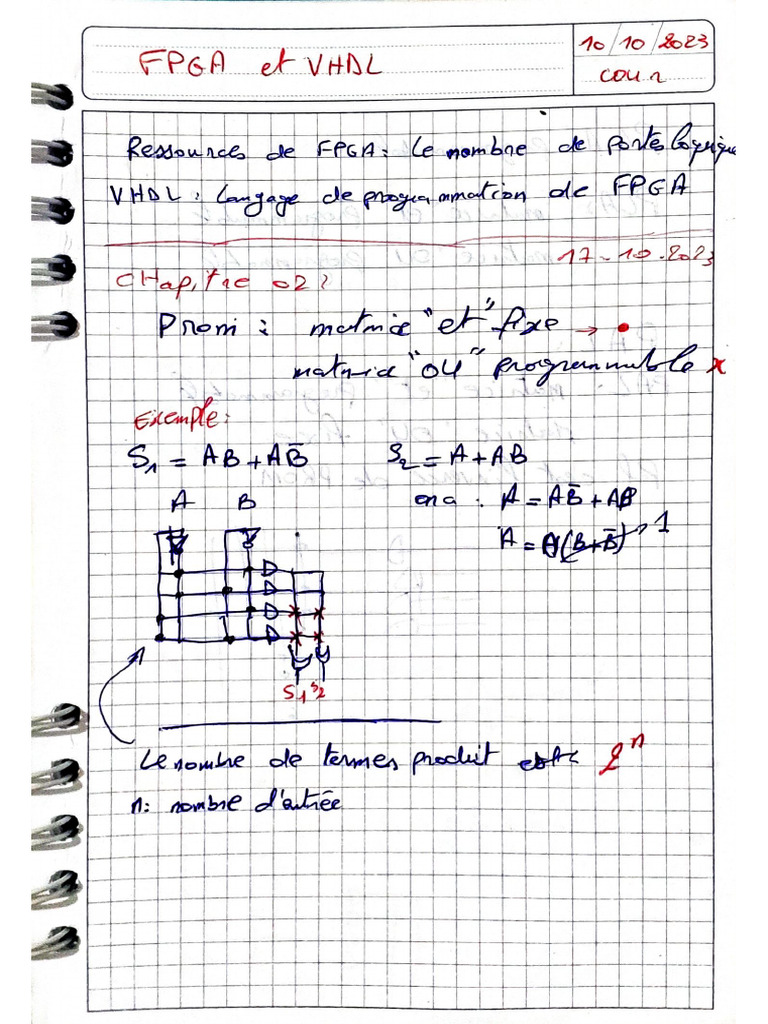 FPGA et VHDL
10/10/2023
cour
Ressources de FPGA: Le nombre de portes logique
VHDL: Langage de programmation de FPGA
17-10-2023
CHapitre 02:
Prom: matrice "et" fixe → •
matrice "OU" programmable x
Exemple:
S₁ = AB + AB̅
S₂ = A + AB
A B
on a : A = AB̅ + AB
A = A(B+B̅) → 1
S1 S2
Le nombre de termes produit 2ⁿ
n: nombre d'entrée